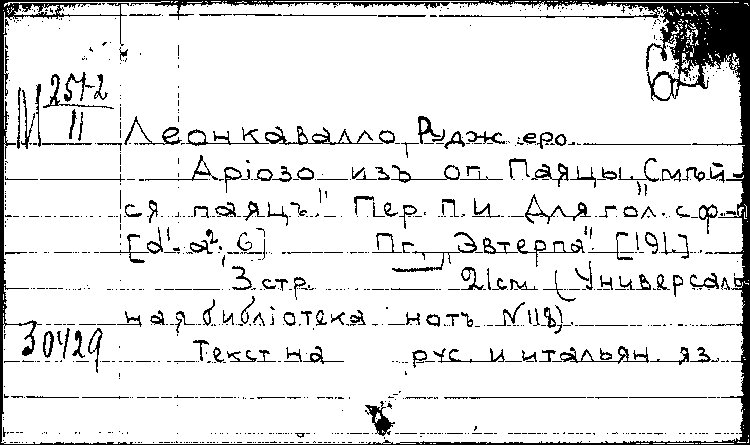 М 251-2
II
Леонкавалло, Руджеро.
Арiозо изъ оп. Паяцы. „Смѣй-
ся паяцъ." Пер. П. И Для гол. с ф-п
[d¹-a². G] Пг., „Эвтерпа". [191.]
3 стр. 21см. (Универсаль
ная библiотека нотъ N 118).
30429
Текст на рус. и итальян. яз.